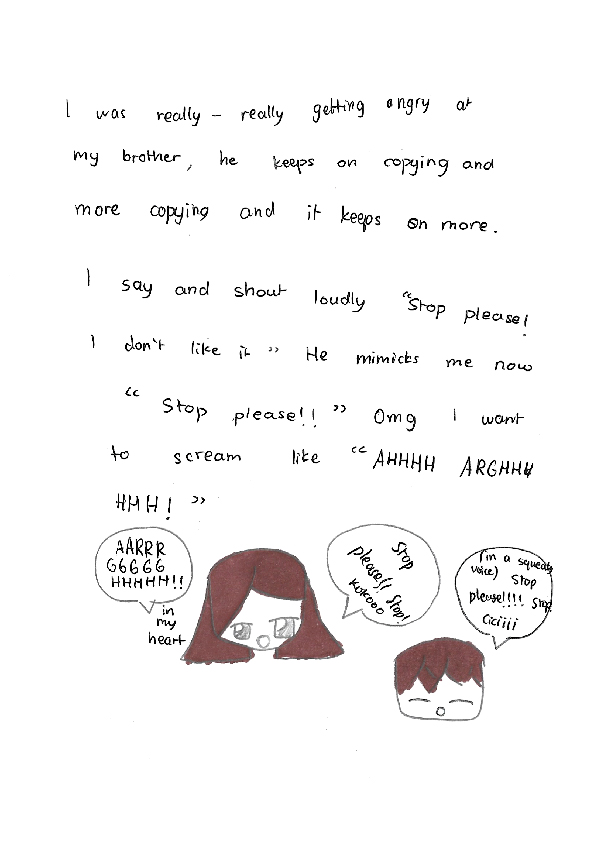 I was really - really getting angry at
my brother, he keeps on copying and
more copying and it keeps on more.
I say and shout loudly "Stop please!
I don't like it" He mimicks me now
"Stop please!!" Omg I want
to scream like "AHHHH ARGHHH
HHH!"
AARRR
GGGGG
HHHHH!!
in
my
heart
Stop
please!! Stop!
(in a squeaky
voice) Stop
please!!!! Stop
Ciciiii